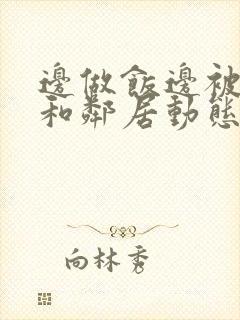 邊做飯邊被
和鄰居動態
向林秀